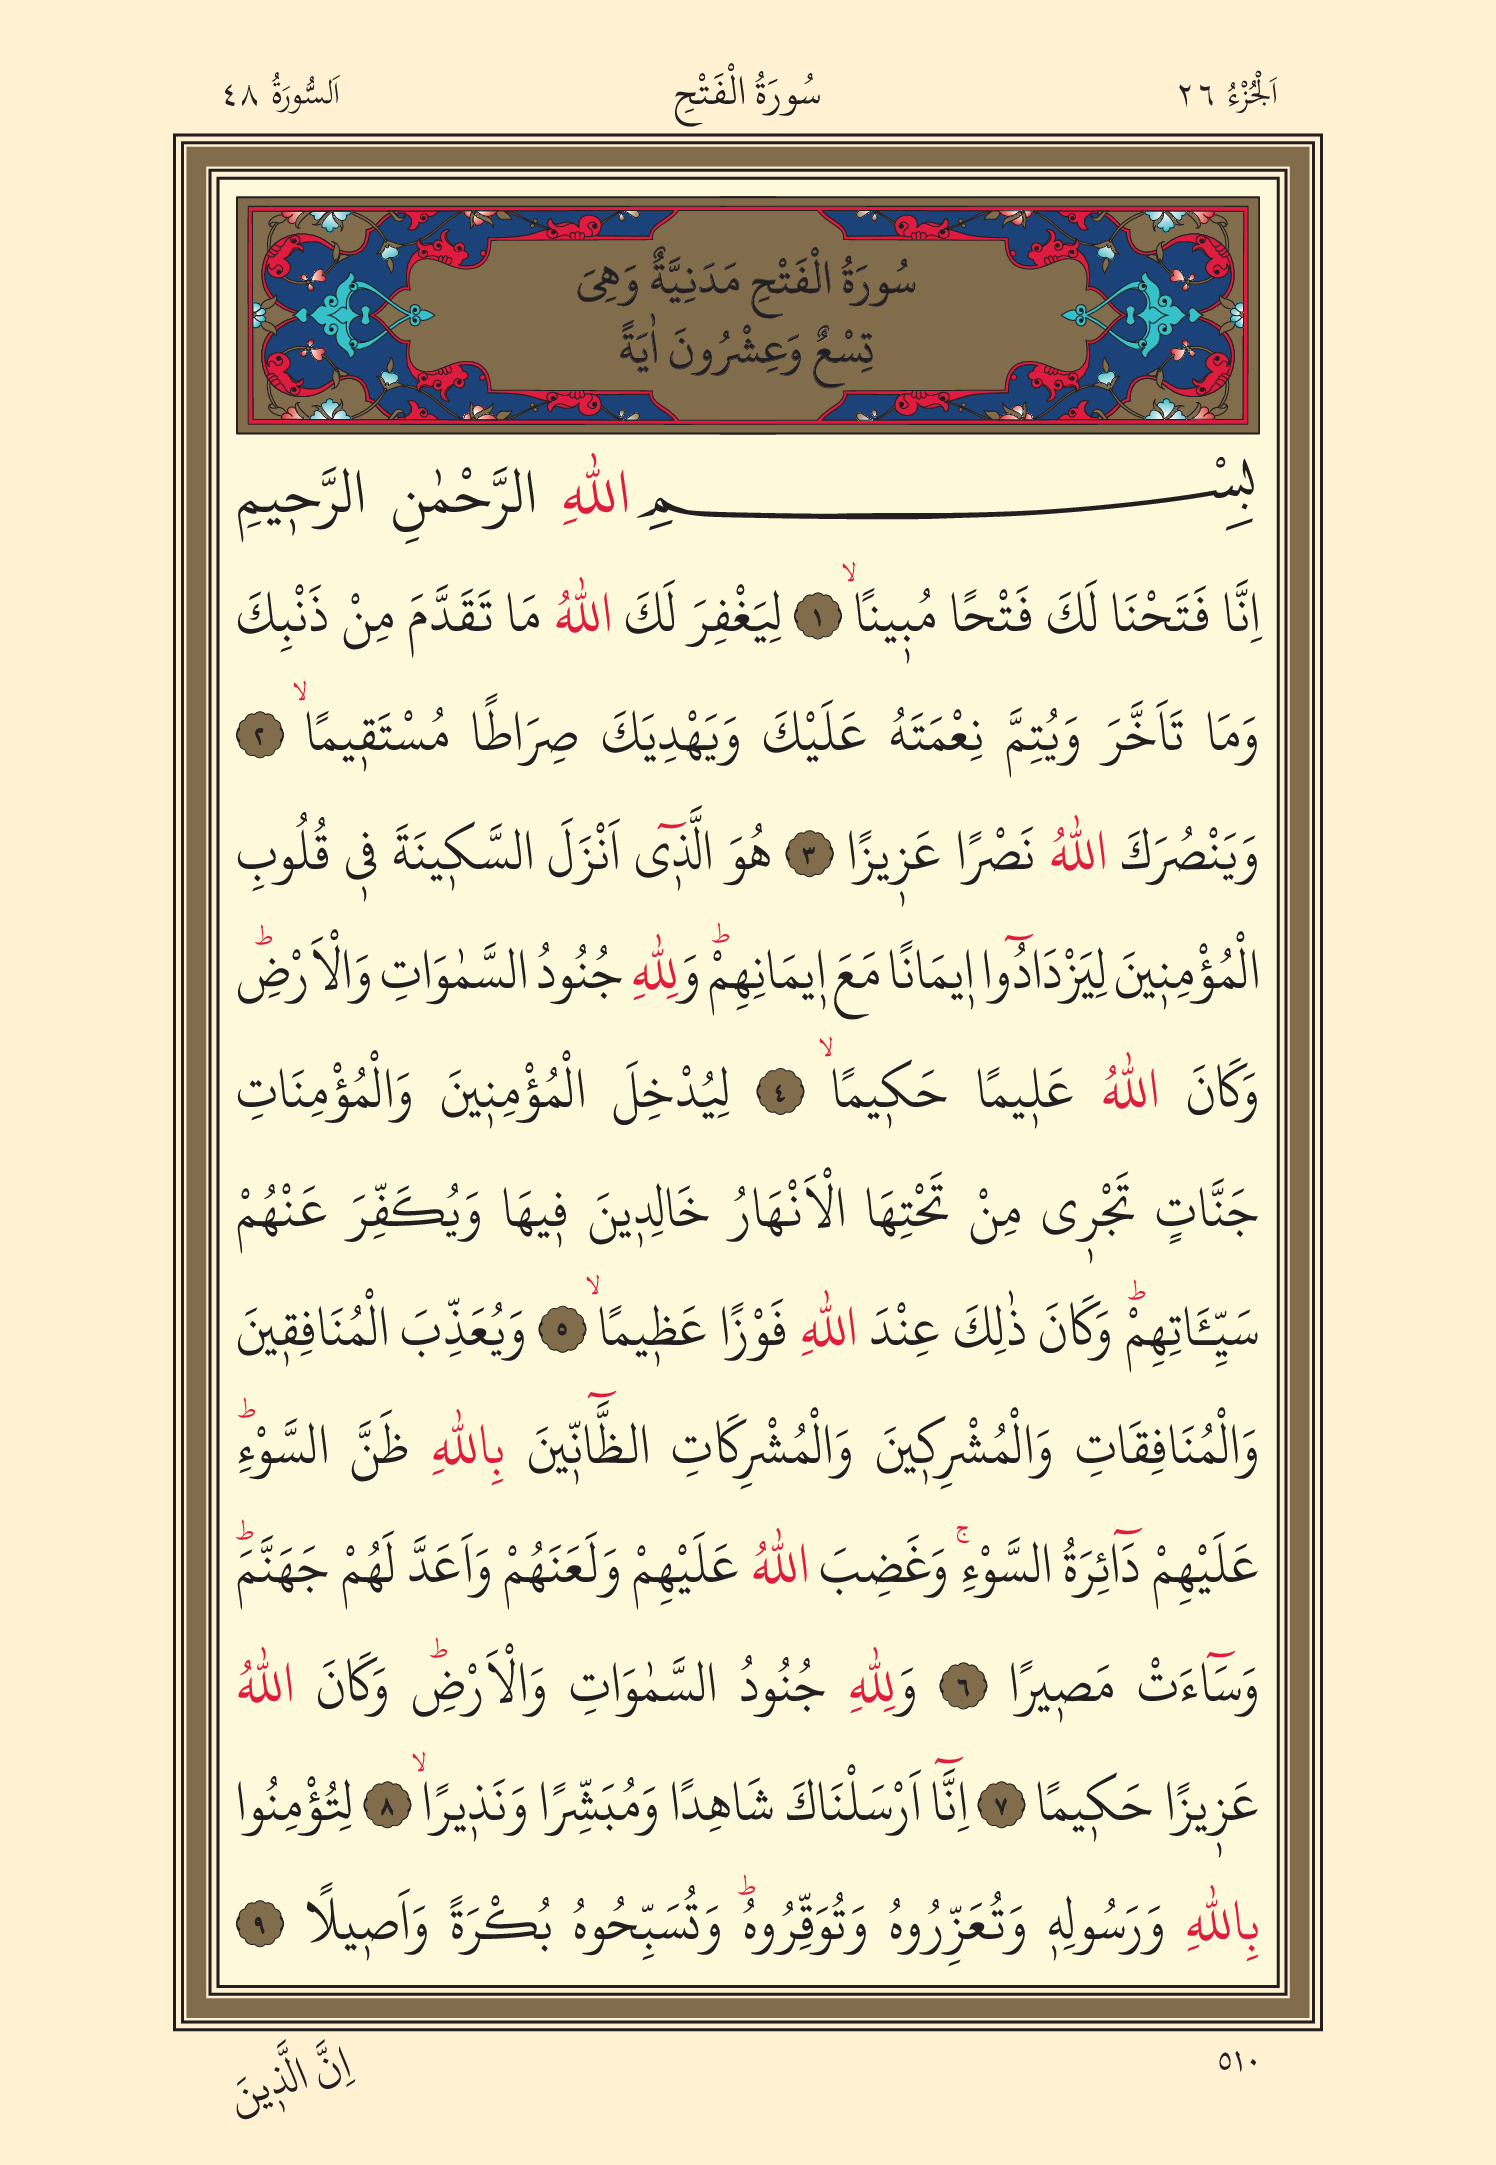 اَلْجُزْءُ ٢٦
سُورَةُ الْفَتْحِ
اَلسُّورَةُ ٤٨
سُورَةُ الْفَتْحِ مَدَنِيَّةٌ وَهِىَ
تِسْعٌ وَعِشْرُونَ اٰيَةً
بِسْــــمِ اللّٰهِ الرَّحْمٰنِ الرَّحٖيمِ
اِنَّا فَتَحْنَا لَكَ فَتْحًا مُبٖينًاۙ ١ لِيَغْفِرَ لَكَ اللّٰهُ مَا تَقَدَّمَ مِنْ ذَنْبِكَ
وَمَا تَاَخَّرَ وَيُتِمَّ نِعْمَتَهُ عَلَيْكَ وَيَهْدِيَكَ صِرَاطًا مُسْتَقٖيمًاۙ ٢
وَيَنْصُرَكَ اللّٰهُ نَصْرًا عَزٖيزًا ٣ هُوَ الَّذٖٓى اَنْزَلَ السَّكٖينَةَ فٖى قُلُوبِ
الْمُؤْمِنٖينَ لِيَزْدَادُٓوا اٖيمَانًا مَعَ اٖيمَانِهِمْؕ وَلِلّٰهِ جُنُودُ السَّمٰوَاتِ وَالْاَرْضِؕ
وَكَانَ اللّٰهُ عَلٖيمًا حَكٖيمًاۙ ٤ لِيُدْخِلَ الْمُؤْمِنٖينَ وَالْمُؤْمِنَاتِ
جَنَّاتٍ تَجْرٖى مِنْ تَحْتِهَا الْاَنْهَارُ خَالِدٖينَ فٖيهَا وَيُكَفِّرَ عَنْهُمْ
سَيِّـَٔاتِهِمْؕ وَكَانَ ذٰلِكَ عِنْدَ اللّٰهِ فَوْزًا عَظٖيمًاۙ ٥ وَيُعَذِّبَ الْمُنَافِقٖينَ
وَالْمُنَافِقَاتِ وَالْمُشْرِكٖينَ وَالْمُشْرِكَاتِ الظَّٓانّٖينَ بِاللّٰهِ ظَنَّ السَّوْءِؕ
عَلَيْهِمْ دَٓائِرَةُ السَّوْءِۚ وَغَضِبَ اللّٰهُ عَلَيْهِمْ وَلَعَنَهُمْ وَاَعَدَّ لَهُمْ جَهَنَّمَؕ
وَسَٓاءَتْ مَصٖيرًا ٦ وَلِلّٰهِ جُنُودُ السَّمٰوَاتِ وَالْاَرْضِؕ وَكَانَ اللّٰهُ
عَزٖيزًا حَكٖيمًا ٧ اِنَّٓا اَرْسَلْنَاكَ شَاهِدًا وَمُبَشِّرًا وَنَذٖيرًاۙ ٨ لِتُؤْمِنُوا
بِاللّٰهِ وَرَسُولِهٖ وَتُعَزِّرُوهُ وَتُوَقِّرُوهُؕ وَتُسَبِّحُوهُ بُكْرَةً وَاَصٖيلًا ٩
٥١٠
اِنَّ الَّذٖينَ